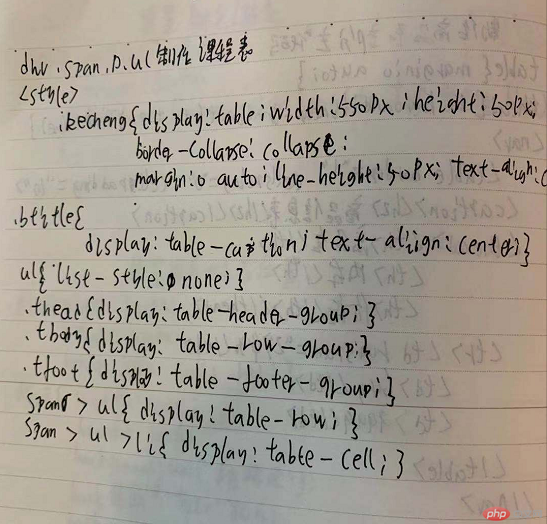 div.span.p.ul制作课程表
<style>
.kecheng{display:table;width:550px;height:50px;
border-collapse:collapse;
margin:0 auto;line-height:50px;text-align:c
.btitle{
display:table-caption;text-align:center;}
ul{list-style:none;}
.thead{display:table-header-group;}
.tbody{display:table-row-group;}
.tfoot{display:table-footer-group;}
span>ul{display:table-row;}
span>ul>li{display:table-cell;}
php